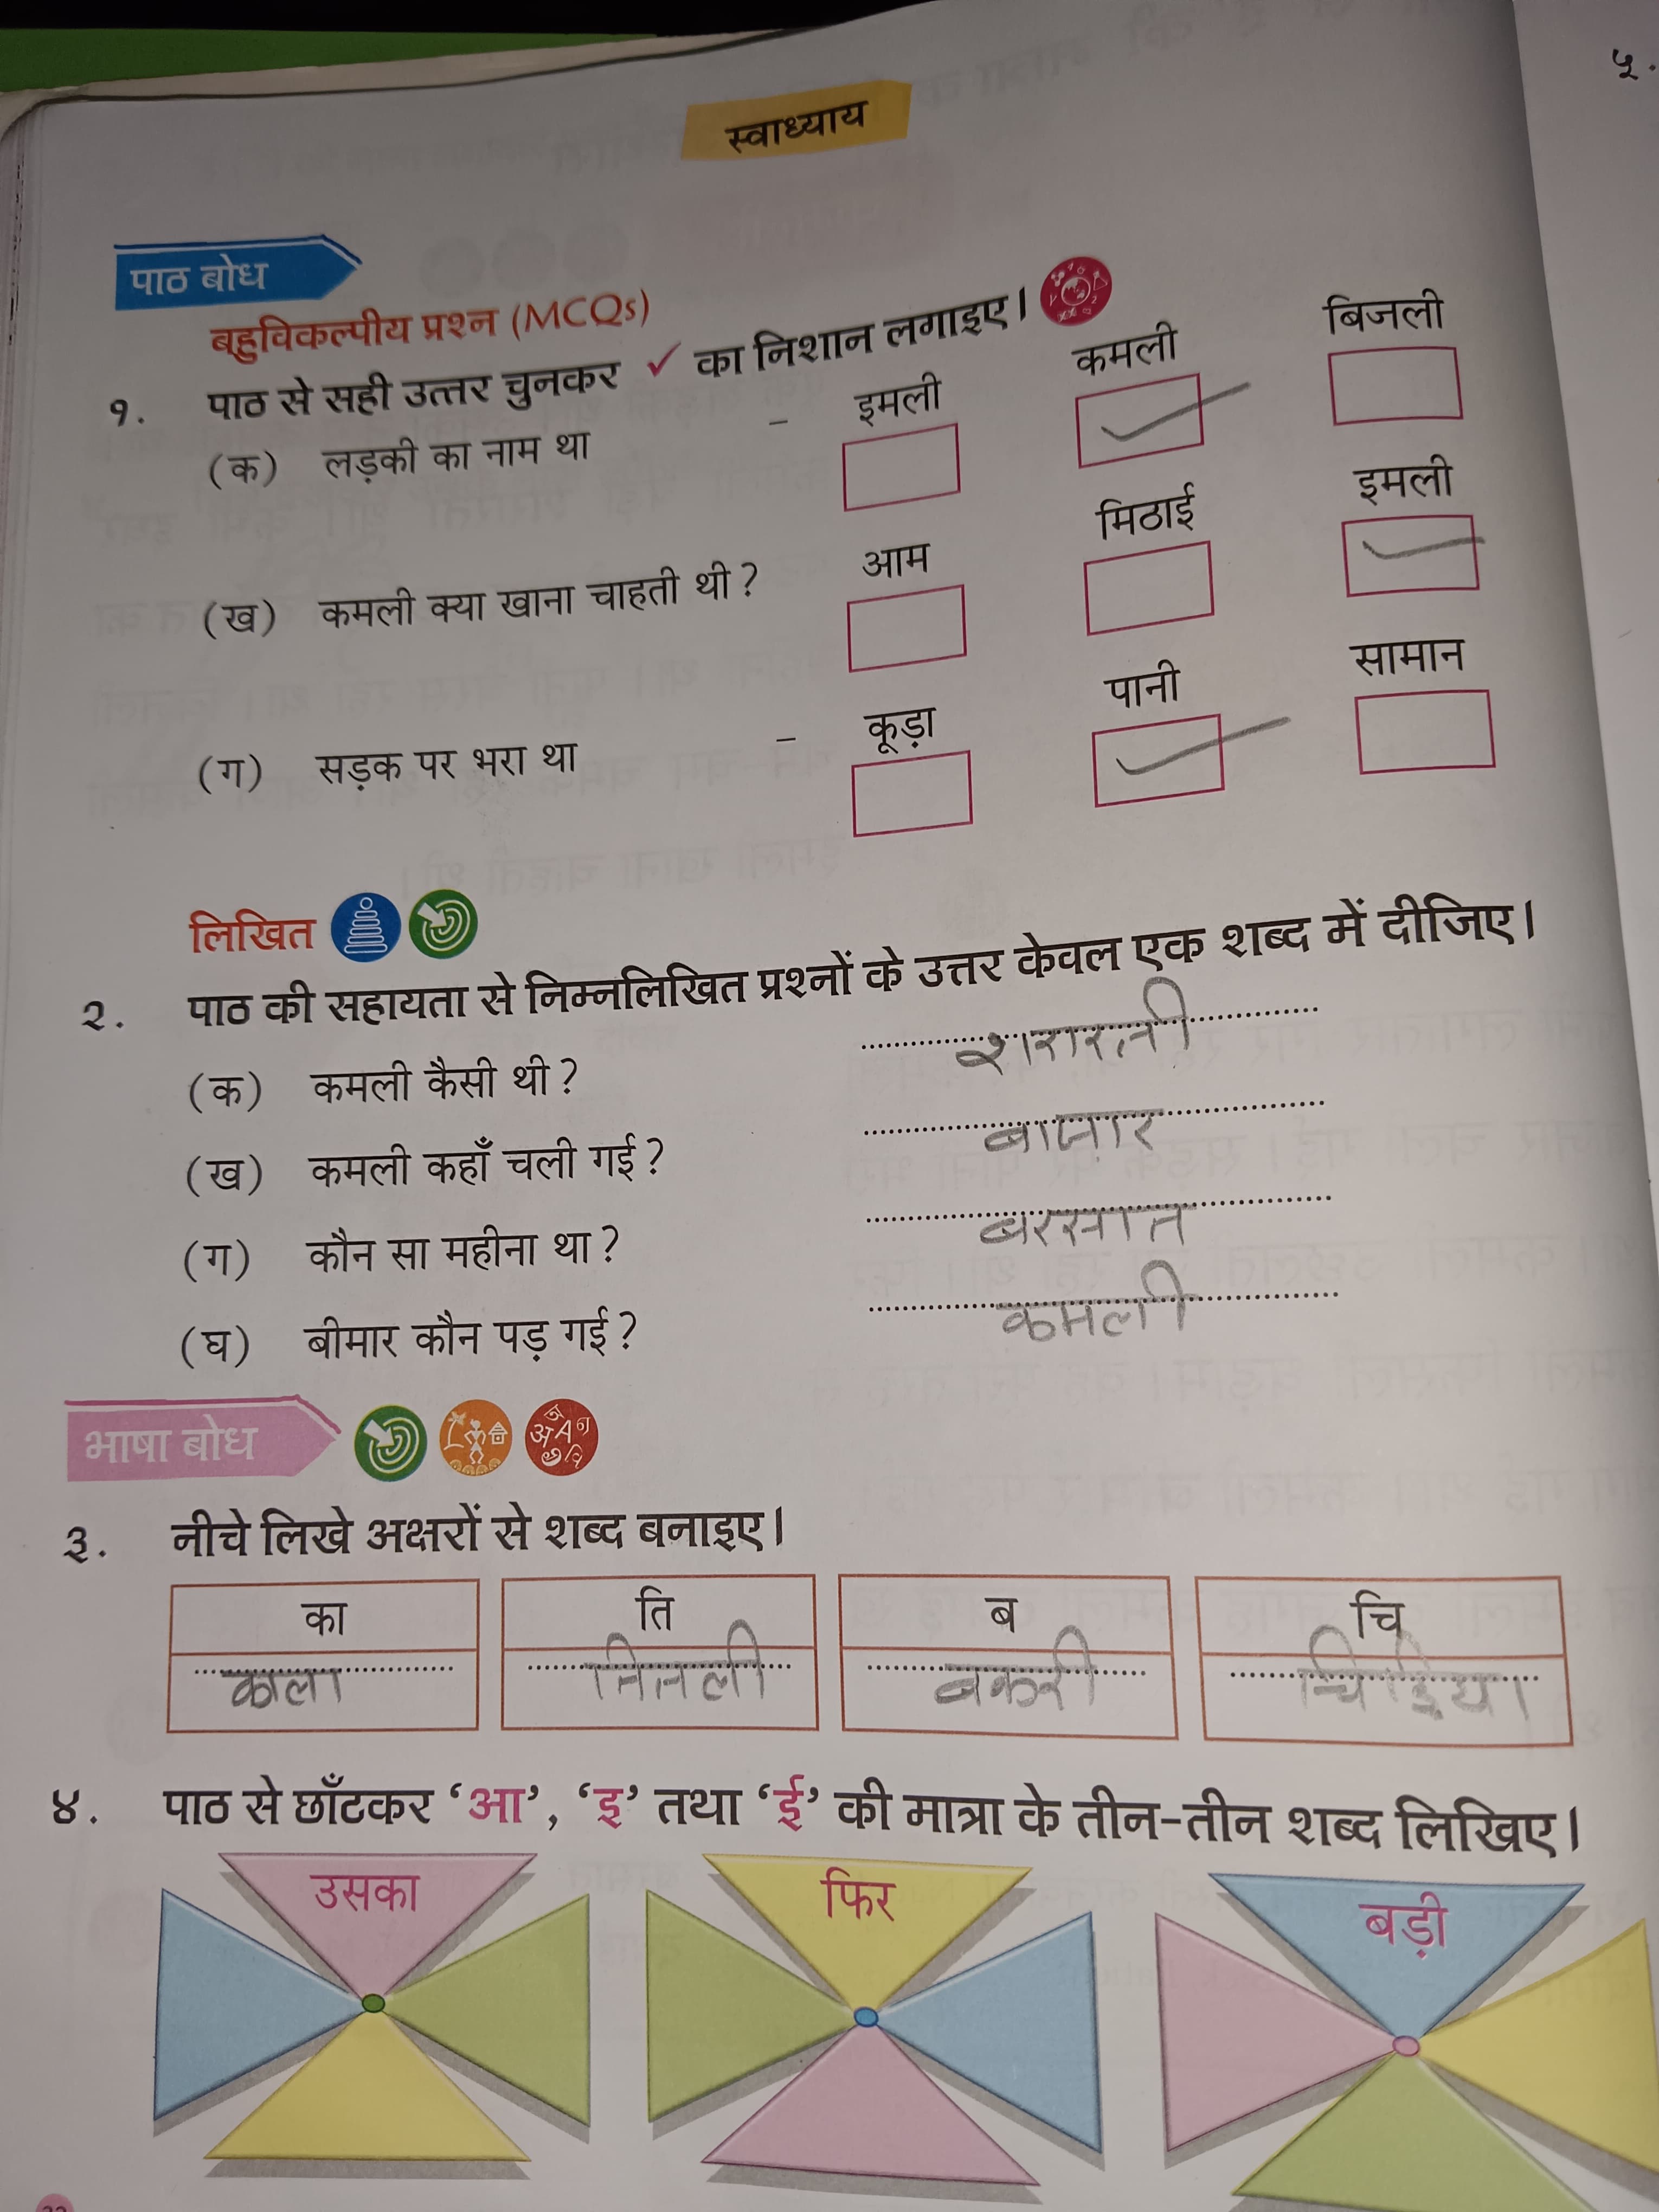 ५.
स्वाध्याय
पाठ बोध
बहुविकल्पीय प्रश्न (MCQs)
१. पाठ से सही उत्तर चुनकर ✓ का निशान लगाइए।
(क) लड़की का नाम था - इमली कमली बिजली
(ख) कमली क्या खाना चाहती थी ? आम मिठाई इमली
(ग) सड़क पर भरा था - कूड़ा पानी सामान
लिखित
२. पाठ की सहायता से निम्नलिखित प्रश्नों के उत्तर केवल एक शब्द में दीजिए।
(क) कमली कैसी थी ? शरारती
(ख) कमली कहाँ चली गई ? बाजार
(ग) कौन सा महीना था ? बरसात
(घ) बीमार कौन पड़ गई ? कमली
भाषा बोध
३. नीचे लिखे अक्षरों से शब्द बनाइए।
का ति ब चि
काला तितली बकरी चिड़िया
४. पाठ से छाँटकर ‘आ’, ‘इ’ तथा ‘ई’ की मात्रा के तीन-तीन शब्द लिखिए।
उसका फिर बड़ी